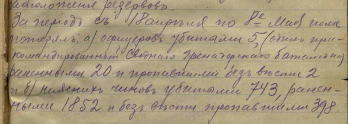 расположенія резервовъ.
За періодъ съ 18 апрѣля по 8е Мая полк
потерялъ, а) офицеровъ убитыми 5, (одинъ при-
командированный Своднаго Гренадерскаго баталіона)
ранеными 20 и пропавшими безъ вѣсти 2
и б) нижнихъ чиновъ убитыми 743, ранен-
ными 1852 и безъ вѣсти пропавшими 398.